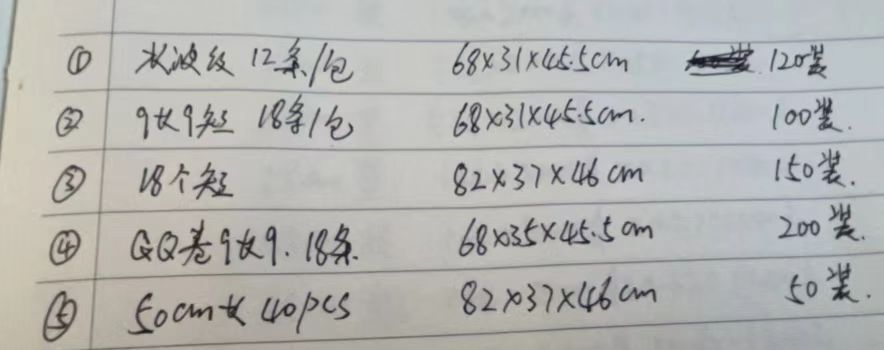 ① 水波纹 12条/包 68×31×45.5cm 120装
② 9长9短 18条/包 68×31×45.5cm. 100装.
③ 18个短 82×37×46cm 150装.
④ QQ卷9长9. 18条. 68×35×45.5cm 200装.
⑤ 50cm长 40pcs 82×37×46cm 50装.